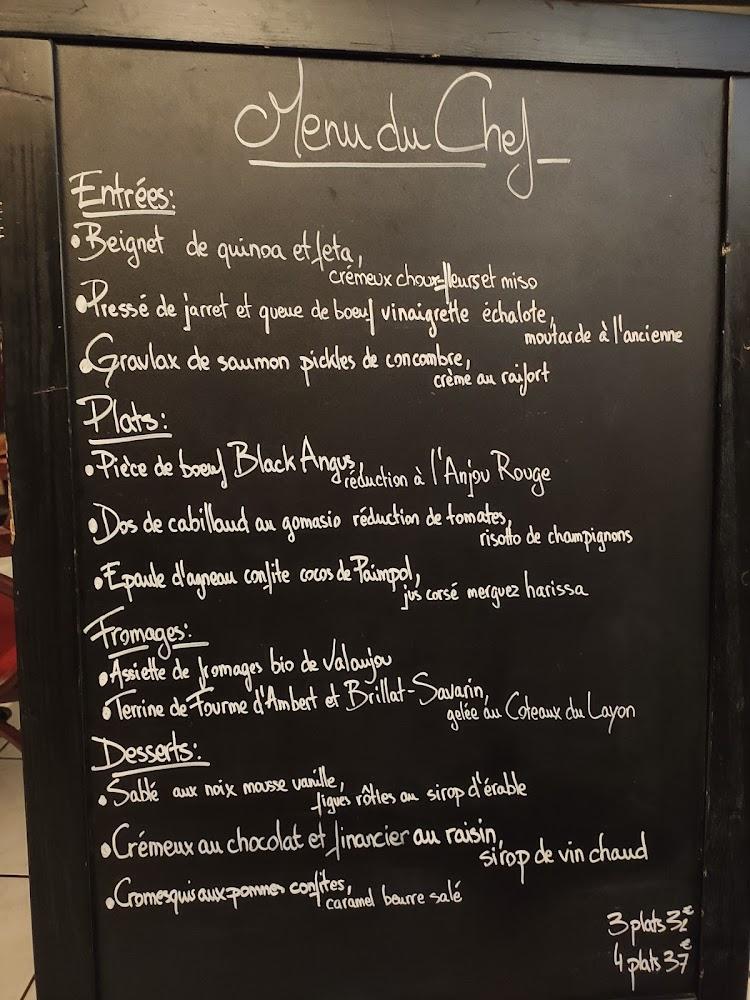 Menu du Chef
Entrées:
•Beignet de quinoa et feta,
crémeux choux-fleurs et miso
•Pressé de jarret et queue de boeuf vinaigrette échalote,
moutarde à l'ancienne
•Gravlax de saumon pickles de concombre,
crème au raifort
Plats:
•Pièce de boeuf Black Angus,
réduction à l'Anjou Rouge
•Dos de cabillaud au gomasio réduction de tomates,
risotto de champignons
•Epaule d'agneau confite cocos de Paimpol,
jus corsé merguez harissa
Fromages:
•Assiette de fromages bio de Valanjou
•Terrine de Fourme d'Ambert et Brillat-Savarin,
gelée au Coteaux du Layon
Desserts:
•Sablé aux noix mousse vanille,
figues rôties au sirop d'érable
•Crémeux au chocolat et financier au raisin,
sirop de vin chaud
•Cromesquis aux pommes confites,
caramel beurre salé
3 plats 32€
4 plats 37€